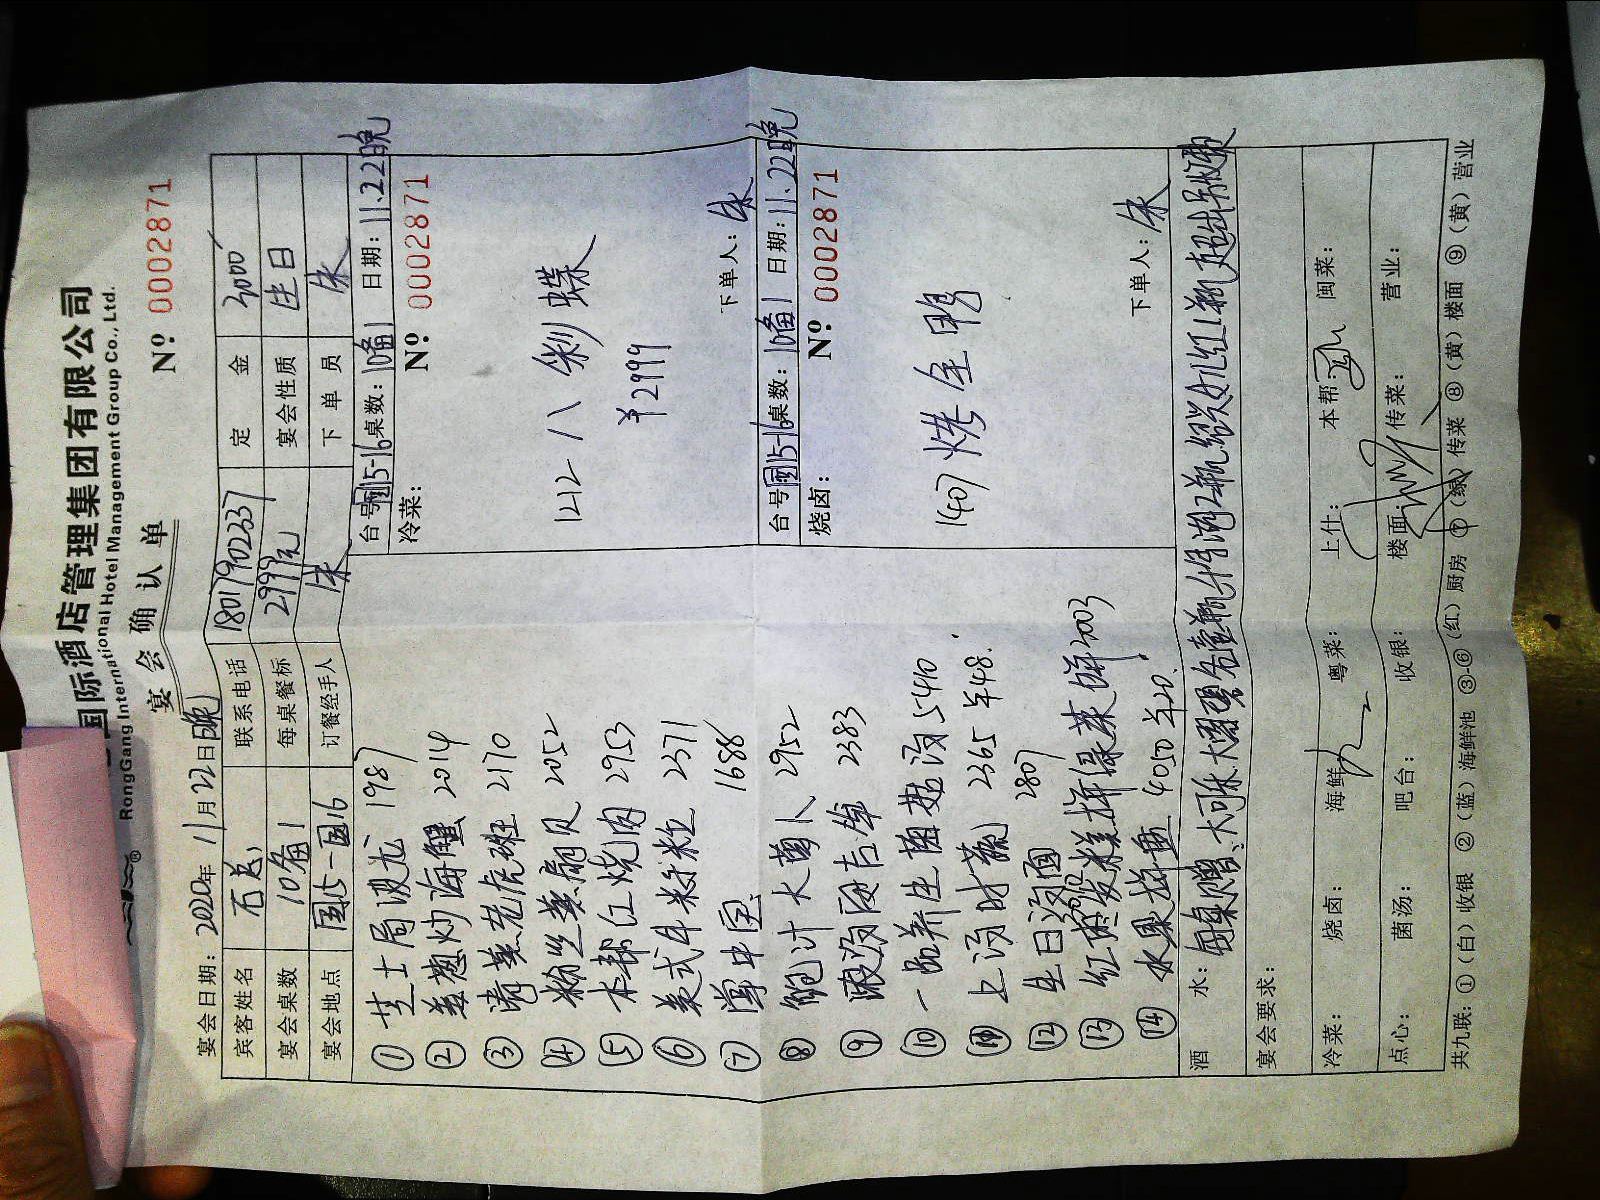 国际酒店管理集团有限公司
RongGang International Hotel Management Group Co., Ltd.
宴会确认单
Nº 0002871
宴会日期：2020年11月22日晚
宾客姓名 石总 联系电话 18017902337 定金 3000
宴会桌数 10备1 每桌餐标 2999元 宴会性质 生日
宴会地点 国15-国16 订餐经手人 朱 下单员 朱
① 芝士焗波龙 1987
② 姜葱炒海蟹 2014
③ 清蒸老虎斑 2170
④ 粉丝蒸扇贝 2052
⑤ 本帮红烧肉 2953
⑥ 美式牛粒 2371
⑦ 中国 1688
⑧ 鲍汁大 2952
⑨ 2383
⑩ 一品养生菌菇汤 5410
⑪ 上汤时蔬 2365 羊48.
⑫ 生日汤面 2807
⑬ 红枣发糕拼绿茶饼 2003
⑭ 水果拼盘 4050 羊20.
台号 国15-16 桌数：10备1 日期：11.22晚
冷菜： Nº 0002871
1212 八彩蝶
¥2999
下单人：朱
台号 国15-16 桌数：10备1 日期：11.22晚
烧卤： Nº 0002871
1407 烤全鸭
下单人：朱
酒水：每桌赠：大可乐 大雪碧各壹瓶
宴会要求：
冷菜： 烧卤： 海鲜： 粤菜： 上什： 本帮： 闽菜：
点心： 菌汤： 吧台： 收银： 楼面： 传菜： 营业：
共九联：①（白）收银 ②（蓝）海鲜池 ③-⑥（红）厨房 ⑦（绿）传菜 ⑧（黄）楼面 ⑨（黄）营业